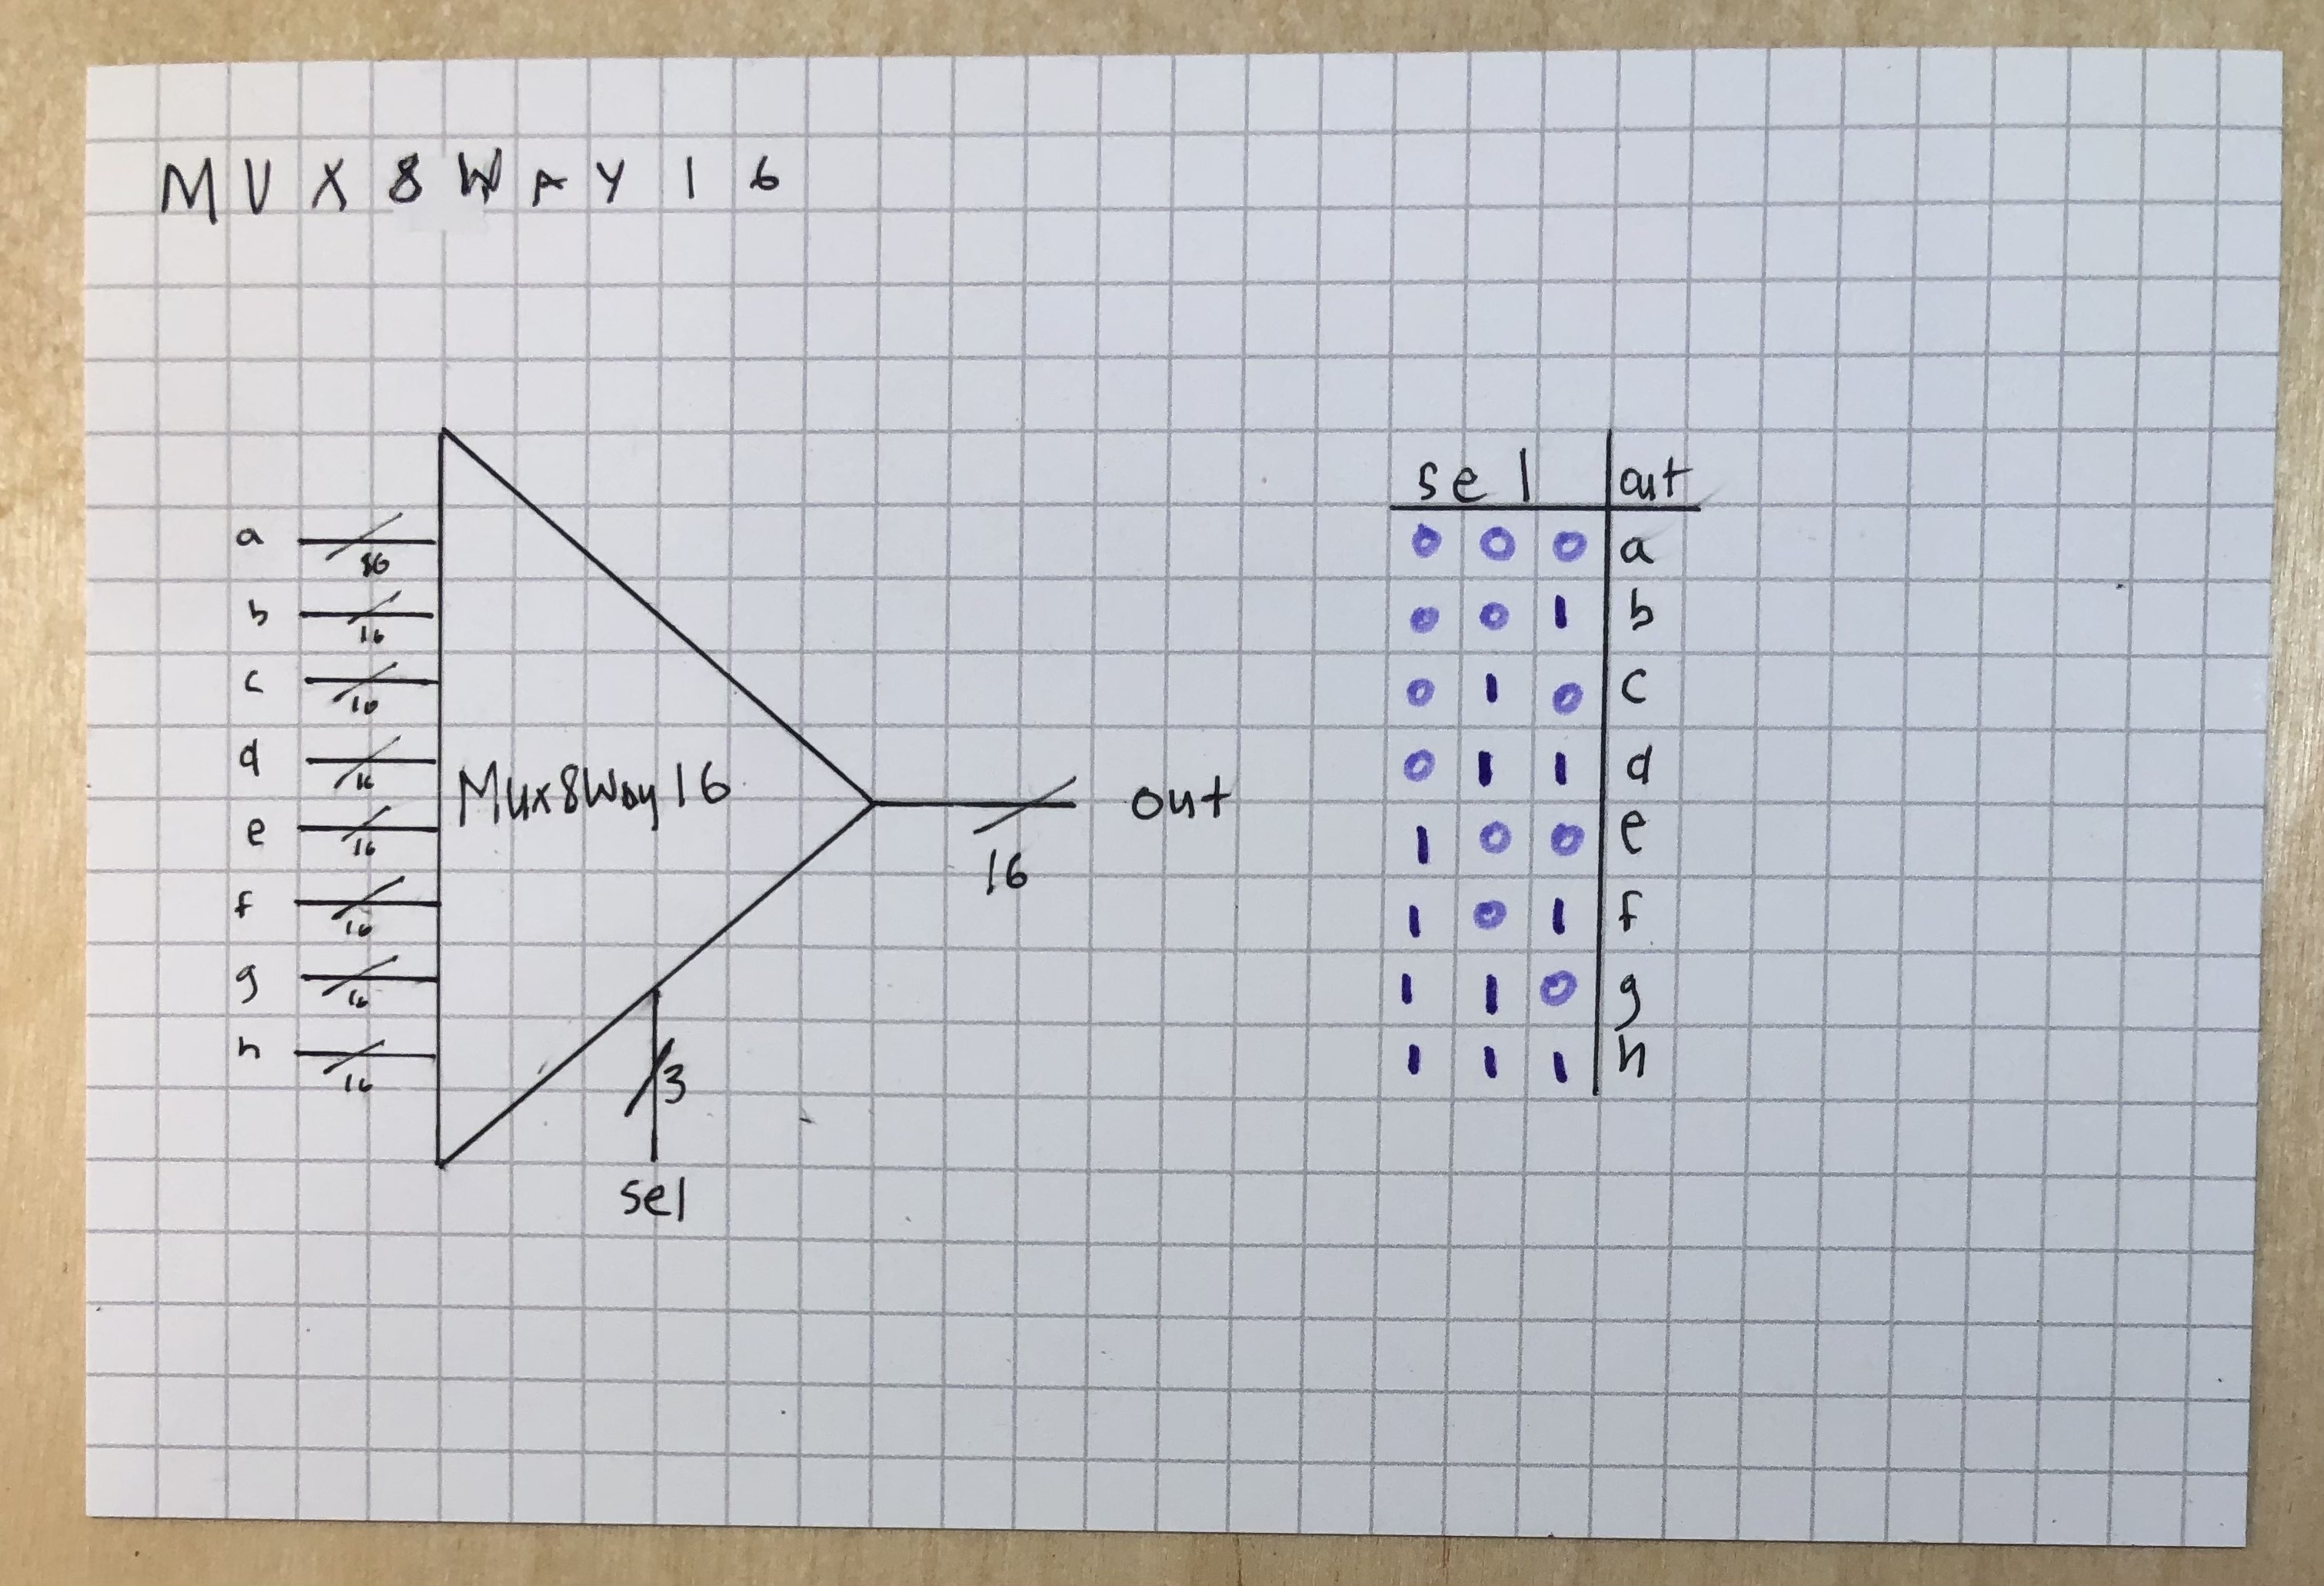 MUX8WAY16
a 16
b 16
c 16
d 16
e 16
f 16
g 16
h 16
Mux8Way16
16 out
3
sel
sel out
0 0 0 a
0 0 1 b
0 1 0 c
0 1 1 d
1 0 0 e
1 0 1 f
1 1 0 g
1 1 1 h